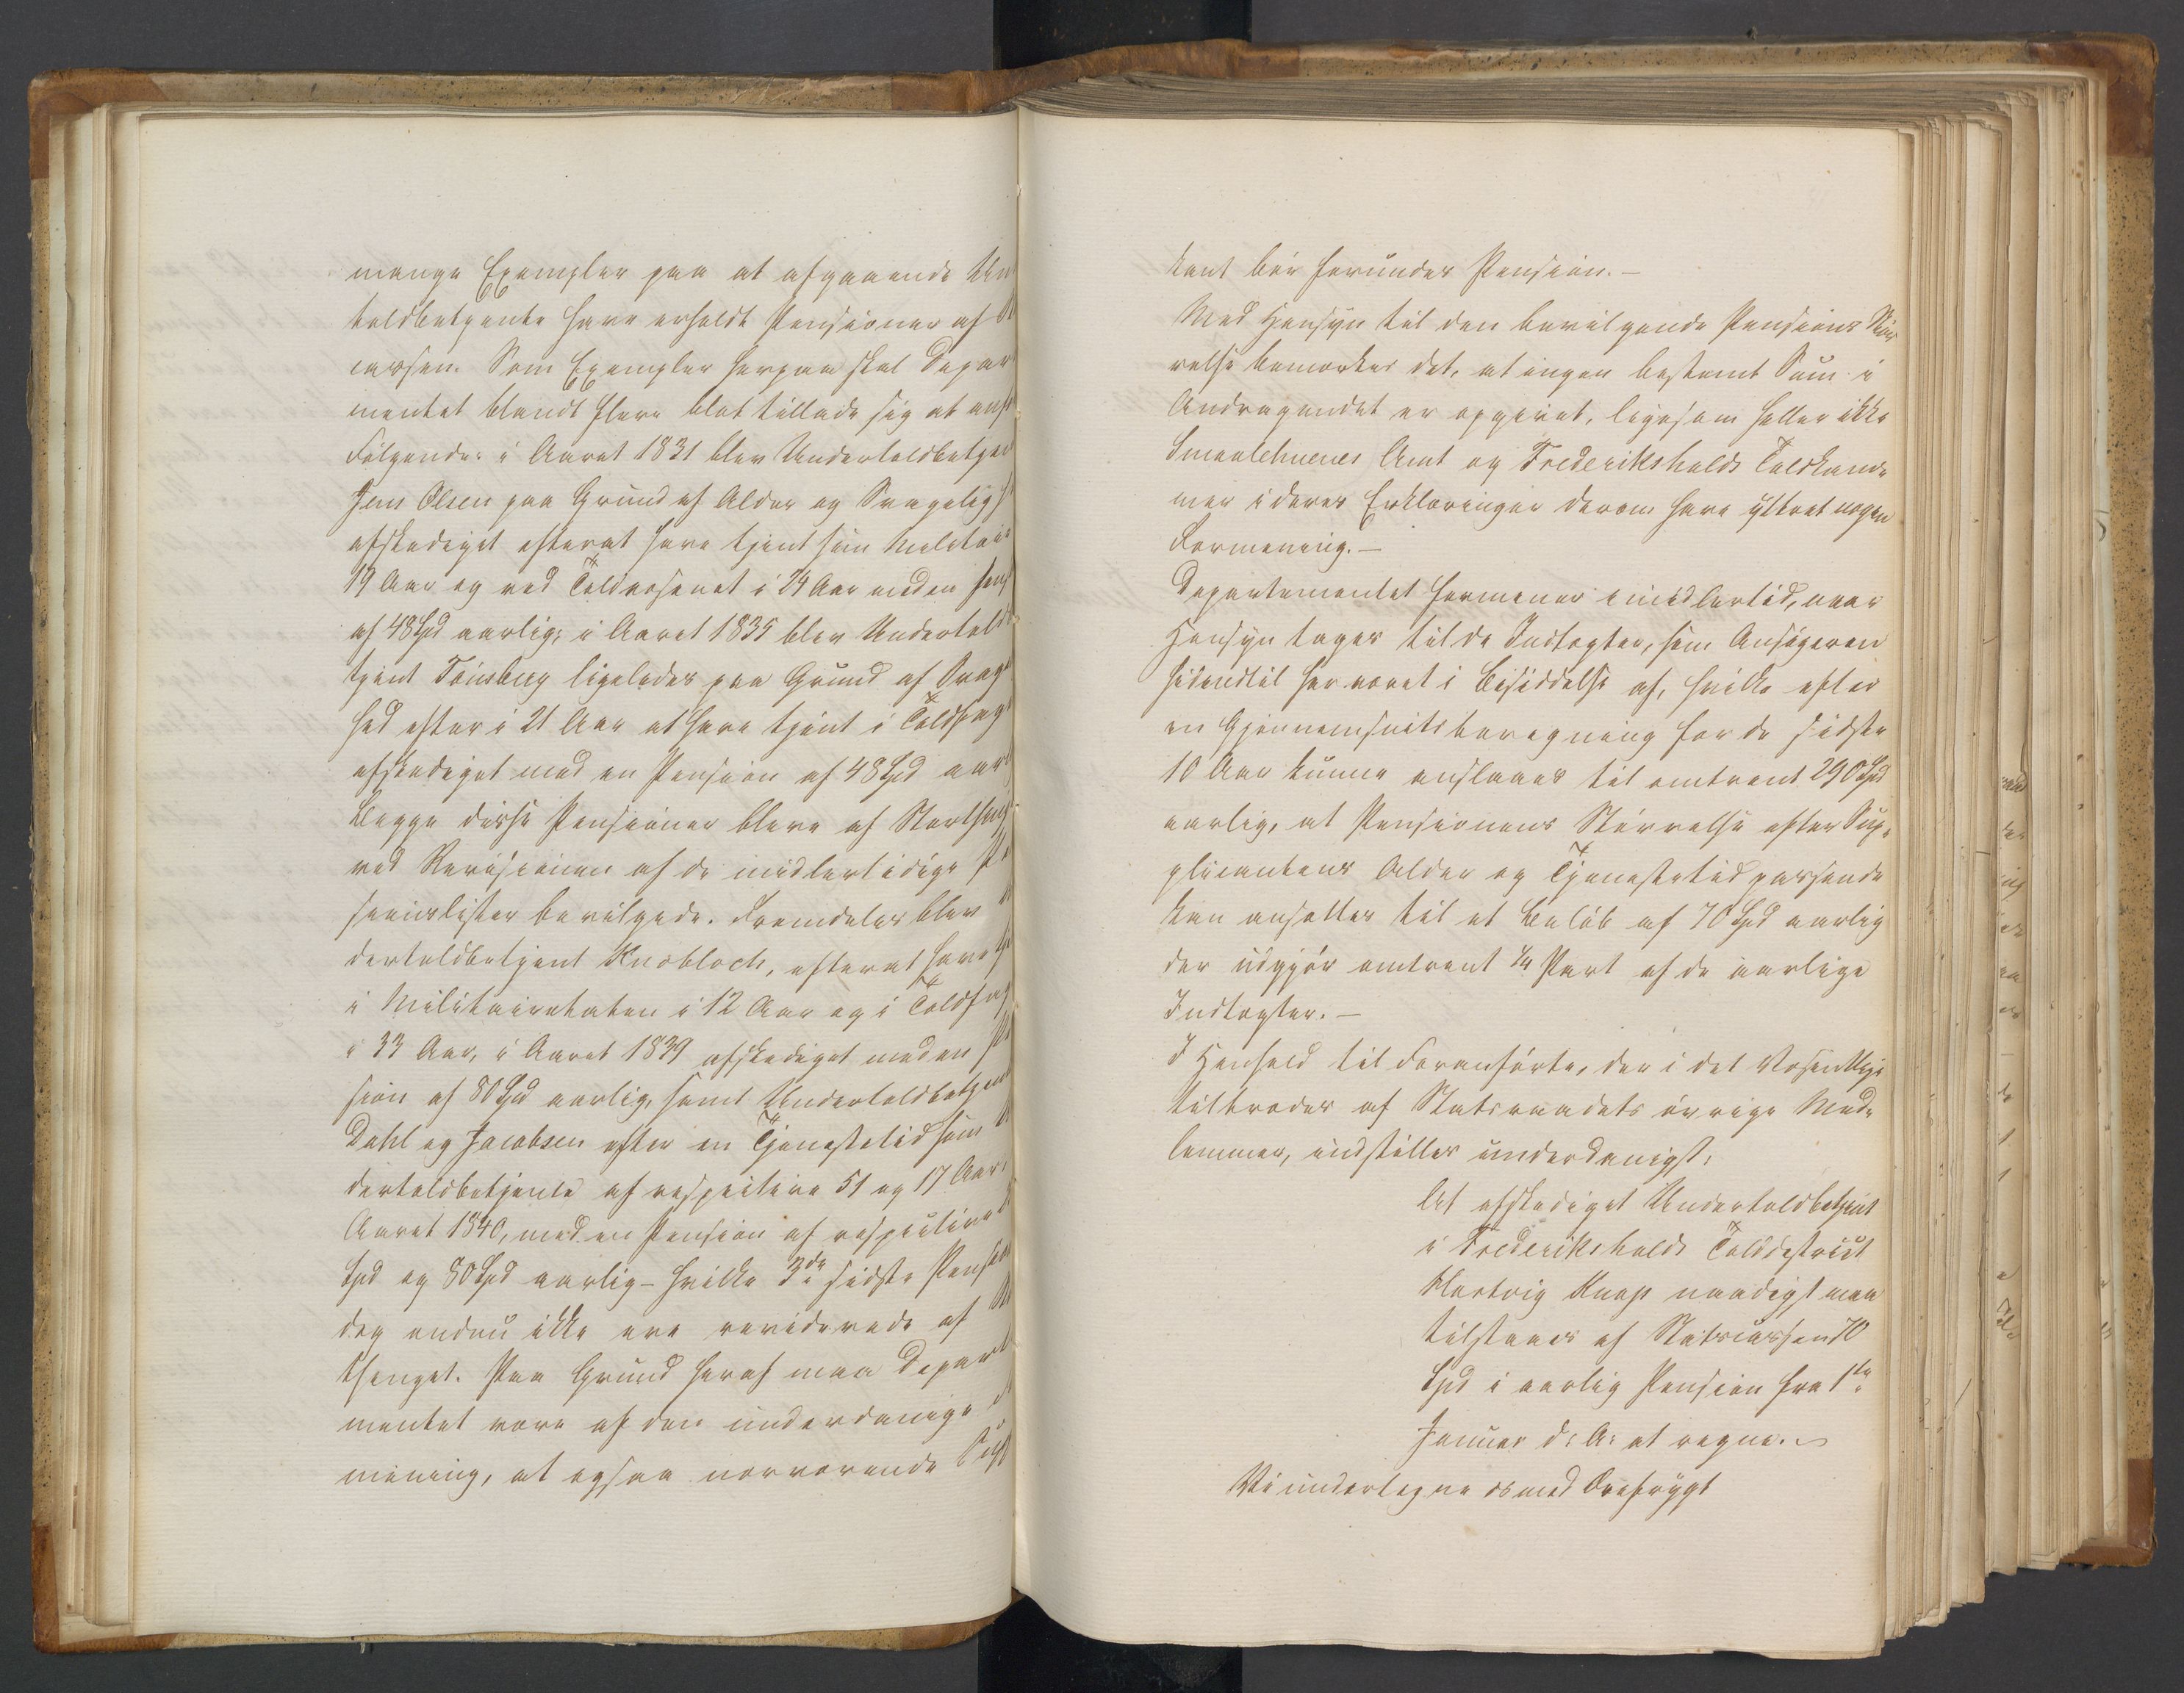 mange Exempler paa at afgaaende Un
toldbetjente have erholdt Pensioner af
cassen. Som Exempler herpaa skal Depar
mentet blandt flere blot tillade sig at anf
Følgende: i Aaret 1831 blev Undertoldbetjen
Jens Olsen paa Grund af Alder og Svagelig
afskediget efterat have tjent som Militair
19 Aar og ved Toldvæsenet i 24 Aar med en Pens
af 48 Spd aarlig; i Aaret 1835 blev Undertold
tjent Tønsberg ligeledes paa Grund af Svag
hed efter i 21 Aar at have tjent i Toldfag
afskediget med en Pension af 48 Spd aarl
Begge disse Pensioner bleve af Storthing
ved Revisionen af de midlertidige Pe
sionslister bevilgede. Fremdeles blev
dertoldbetjent Knobloch, efterat have
i Militairetaten i 12 Aar og i Toldfag
i 33 Aar, i Aaret 1839 afskediget med en Pe
sion af 80 Spd aarlig, samt Undertoldbetjen
Dahl og Jacobsen efter en Tjenestetid som
dertoldbetjente af respective 51 og 17 Aar
Aaret 1840, med en Pension af respective
Spd og 80 Spd aarlig – hvilke 3de sidste Pension
dog endnu ikke ere reviderede af
thinget. Paa Grund heraf maa Depart
mentet være af den underdanige
mening, at ogsaa nærværende Sup
kant bør forundes Pension. –
Med Hensyn til den bevilgende Pensions Stør
relse bemærkes det, at ingen bestemt Sum i
Andragendet er opgivet, ligesom heller ikke
Smaalehnenes Amt og Frederikshalds Toldkam-
mer i deres Erklæringer derom have yttret nogen
Formening. –
Departementet formener imidlertid, naar
Hensyn tages til de Indtægter, som Ansøgeren
hidindtil har været i Besiddelse af, hvilke efter
en Gjennemsnitsberegning for de sidste
10 Aar kunne anslaaes til omtrent 290 Spd
aarlig, at Pensionens Størrelse efter Sup-
plicantens Alder og Tjenestetid passende
kan ansættes til et Beløb af 70 Spd aarlig
der udgjør omtrent 1/4 Part af de aarlige
Indtægter. –
I Henhold til Foranførte, der i det Væsentlige
tiltrædes af Statsraadets øvrige Med-
lemmer, indstilles underdanigst:
At afskediget Undertoldbetjent
i Frederikshalds Tolddistrict
Hartvig Knap naadigst maa
tilstaaes af Statscassen 70
Spd i aarlig Pension fra 1ste
Januar d: A: at regne.
Vi undertegne os med Ærefrygt